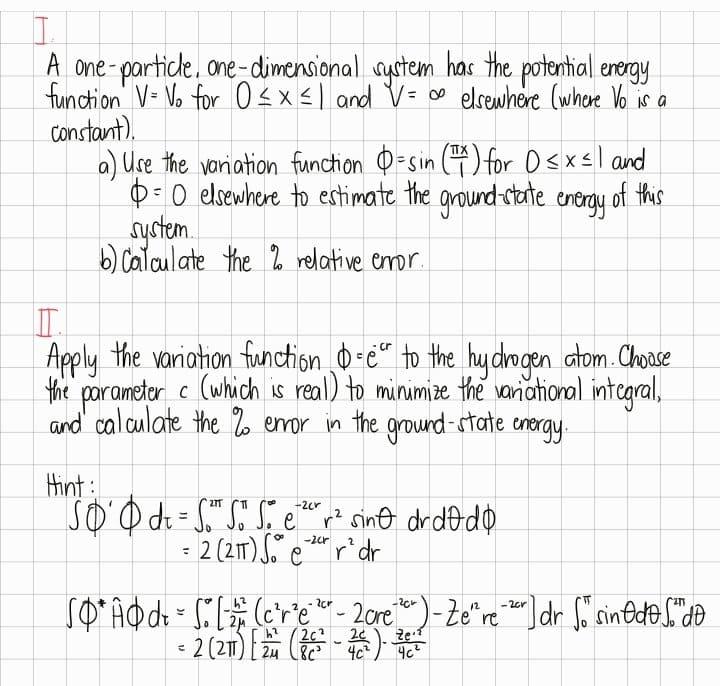 I.
A one-particle, one-dimensional system has the potential energy
function V = V₀ for 0 ≤ x ≤ 1 and V = ∞ elsewhere (where V₀ is a
constant).
a) Use the variation function Φ = sin (πx/1) for 0 ≤ x ≤ 1 and
Φ = 0 elsewhere to estimate the ground-state energy of this
system.
b) Calculate the % relative error.
II.
Apply the variation function Φ = e^cr to the hydrogen atom. Choose
the parameter c (which is real) to minimize the variational integral,
and calculate the % error in the ground-state energy.
Hint:
∫Φ'Φ dτ = ∫₀^2π ∫₀^π ∫₀^∞ e^-2cr r² sinθ dr dθ dΦ
= 2(2π) ∫₀^∞ e^-2cr r² dr
∫Φ*ĤΦ dτ = ∫₀^∞ [-ħ²/2μ (c²r²e^-2cr - 2cre^-2cr) - Ze'²re^-2cr] dr ∫₀^π sinθdθ ∫₀^2π dθ
= 2(2π) [-ħ²/2μ (2c²/8c³ - 2c/4c²) - Ze'²/4c²